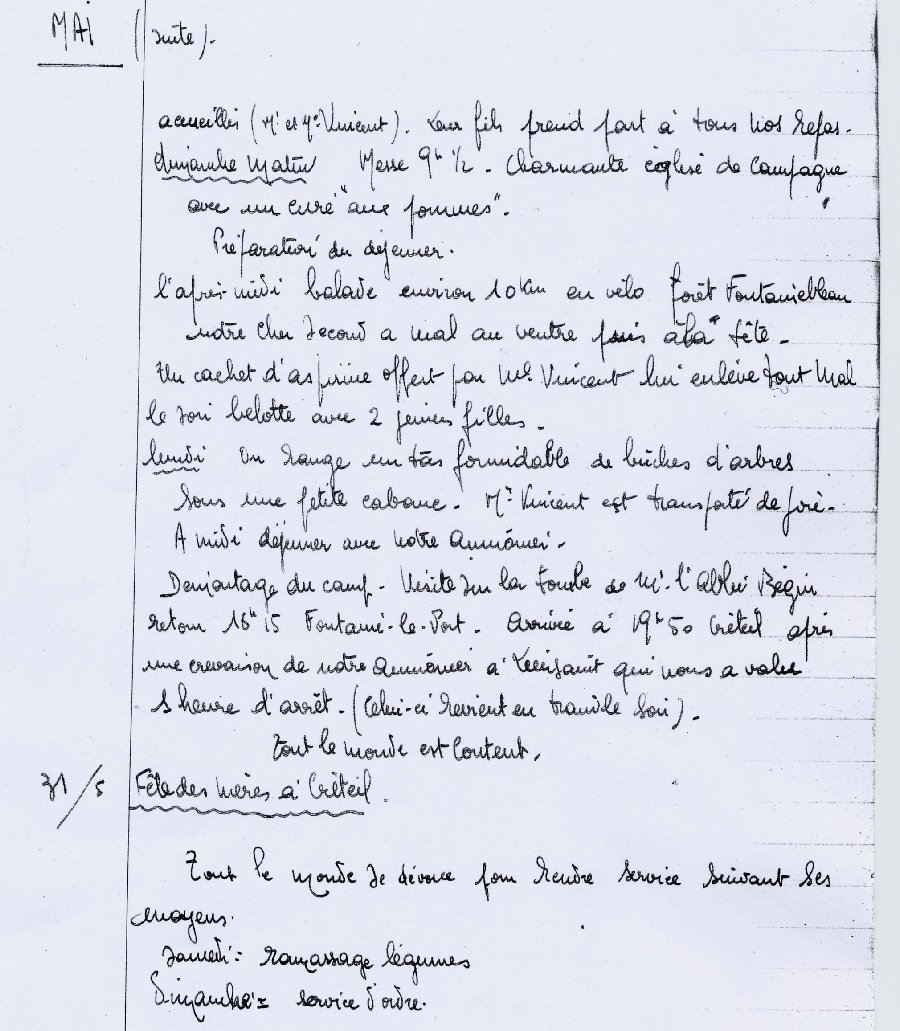 MAI (suite).
accueillis (Mr et Me Vincent). Leur fils prend part à tous nos repas.
Dimanche matin Messe 9h 1/2. Charmante église de Campagne
avec un curé "aux pommes".
Préparation du déjeuner.
l'après-midi balade environ 10 km en vélo forêt Fontainebleau
notre cher second a mal au ventre puis à la tête.
Un cachet d'aspirine offert par Me Vincent lui enlève tout mal
le soir belotte avec 2 jeunes filles.
lundi On range un tas formidable de bûches d'arbres
sous une petite cabane. Mr Vincent est transporté de joie.
A midi déjeuner avec notre Aumônier.
Démontage du camp. Visite sur la tombe de Mr. l'Abbé Bégin
retour 16h15 Fontaine-le-Port. Arrivée à 19h50 Créteil après
une crevaison de notre Aumônier à qui nous a value
1 heure d'arrêt. (Celui-ci revient en train le soir).
Tout le monde est content.
31/5 Fête des mères à Créteil.
Tout le monde se dévoue pour rendre service suivant ses
moyens.
Samedi : ramassage légumes
Dimanche : service d'ordre.